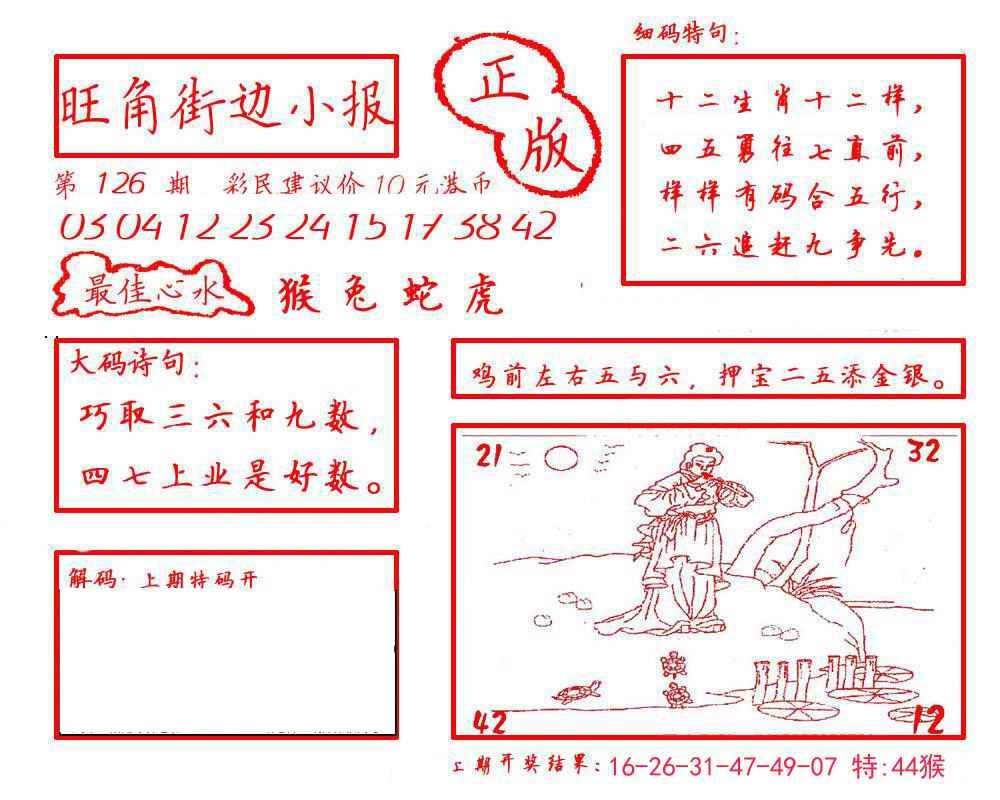 旺角街边小报
正版
第 126 期 彩民建议价 10 元港币
03 04 12 23 24 15 17 38 42
最佳心水 猴 兔 蛇 虎
细码特句:
十二生肖十二样,
四五勇往七直前,
样样有码合五行,
二六追赶九争先。
大码诗句:
巧取三六和九数,
四七上业是好数。
鸡前左右五与六, 押宝二五添金银。
解码·上期特码开
21
32
42
12
上期开奖结果: 16-26-31-47-49-07 特:44猴